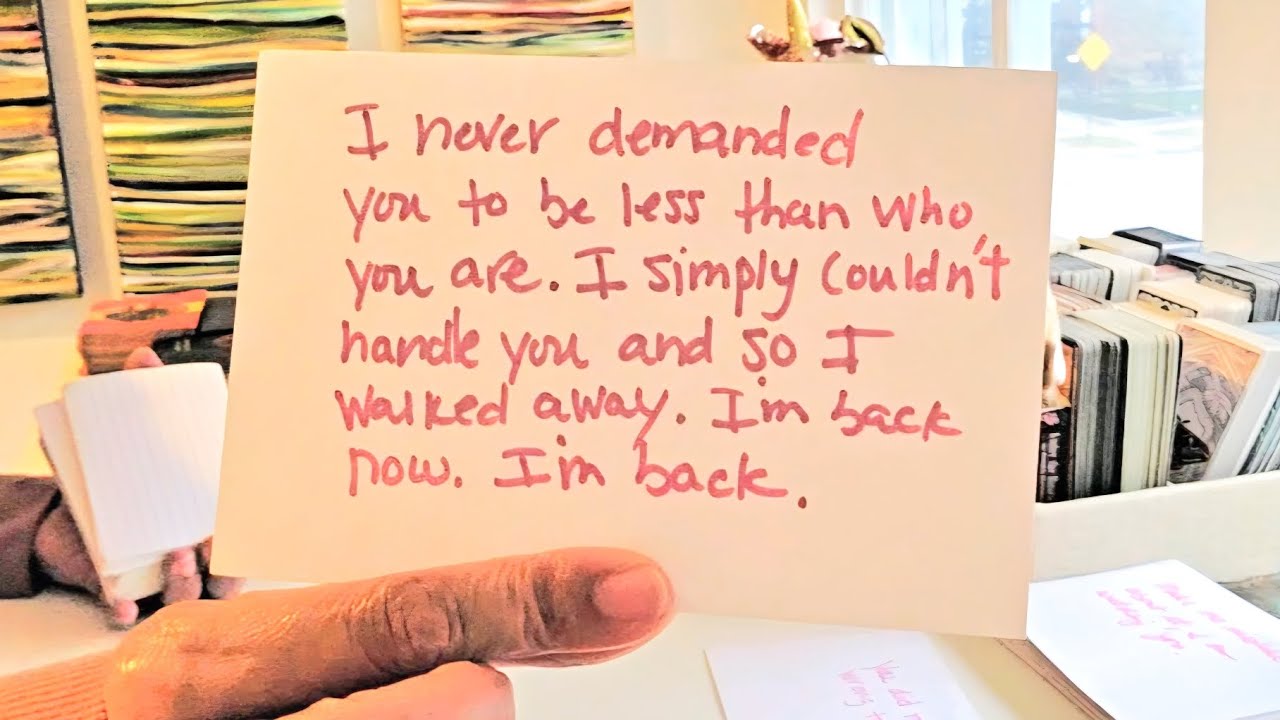 I never demanded
you to be less than who
you are. I simply couldn't
handle you and so I
walked away. I'm back
now. I'm back.
You did
wrong